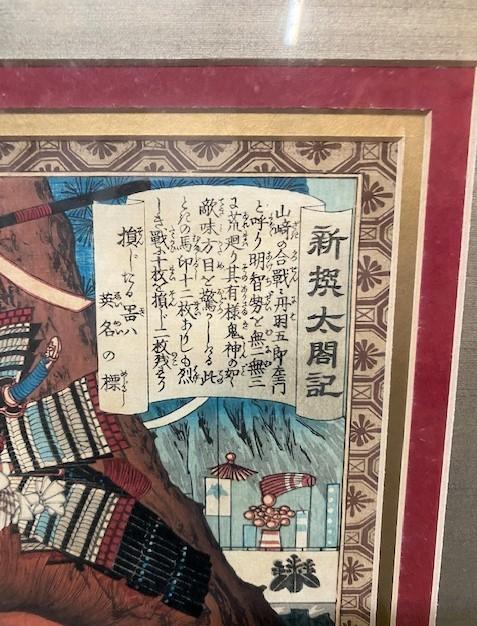 新撰太閤記
山崎の合戦に丹羽五郎左エ門
と呼り明智勢を無二無三
に荒廻り其有様鬼神の如く
敵味方目を驚かしける此
ときの馬印十二枚ありしも烈
しき戦に十枚を損じ二枚残るを
損じたる品ハ
英名の標